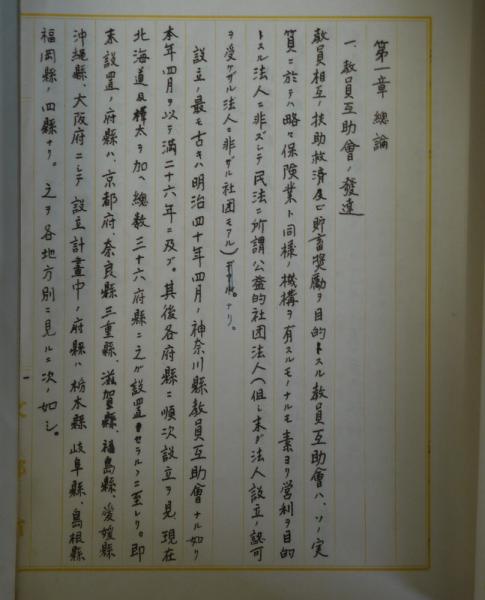 第一章 總論
一、教員互助會ノ發達
教員相互ノ扶助救済及ビ貯畜奬勵ヲ目的トスル教員互助會ハ、ソノ実
質ニ於テハ略々保険業ト同様ノ機構ヲ有スルモノナルモ素ヨリ営利ヲ目的
トスル法人ニ非ズシテ民法ニ所謂公益的社団法人(但シ未ダ法人設立ノ認可
ヲ受ケザル法人ニ非ザル社団モアル)ナリ。
設立ノ最モ古キハ明治四十年四月ノ神奈川縣教員互助會ナル如ク
本年四月ヲ以テ満二十六年ニ及ブ。其後各府縣ニ順次設立ヲ見、現在
北海道及樺太ヲ加ヘ總数三十六府縣ニ之ガ設置セラルヽニ至レリ。即
未設置ノ府縣ハ、京都府、奈良縣、三重縣、滋賀縣、福島縣、愛媛縣
沖縄縣、大阪府ニシテ設立計畫中ノ府縣ハ栃木縣、岐阜縣、島根縣
福岡縣ノ四縣ナリ。之ヲ各地方別ニ見ルニ次ノ如シ。